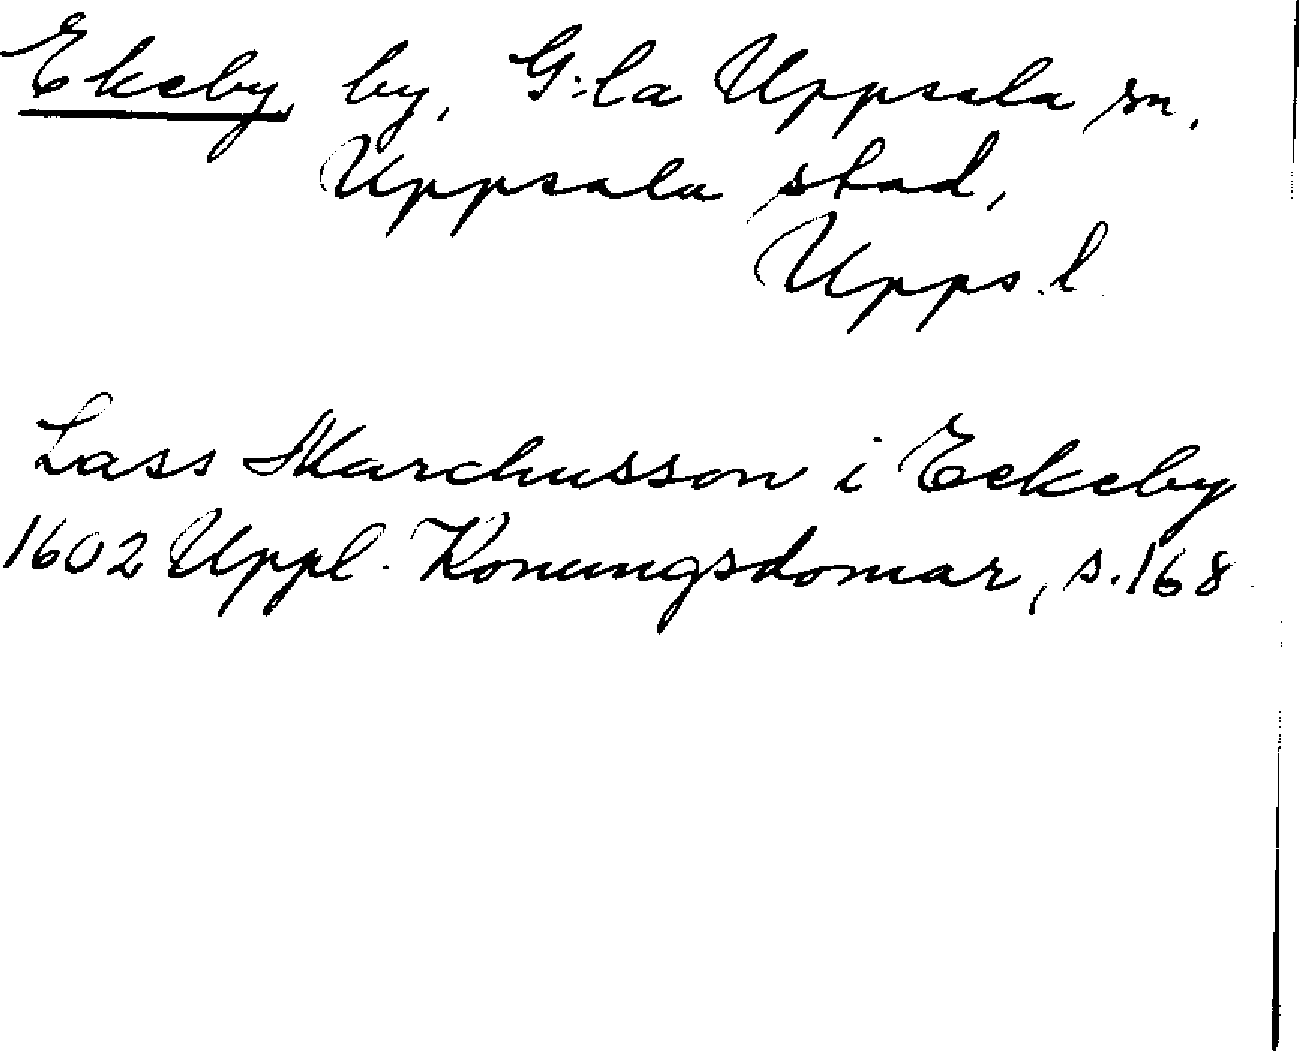 Ekeby by, G:la Uppsala sn.
Uppsala stad,
Upps. l.
Lass Marchusson i Eekeby
1602 Uppl. Konungsdomar, s. 168